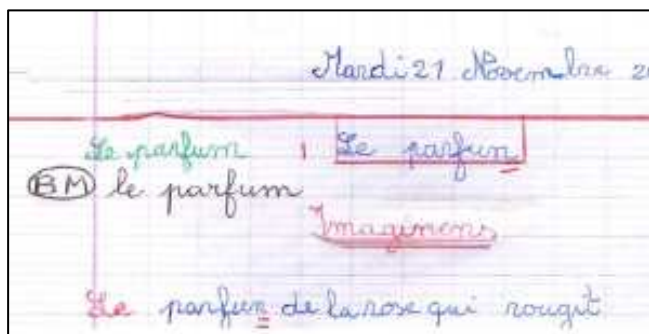 Mardi 21 Novembre 20
Le parfum 1 Le parfun
BM le parfum
Imaginons
Le parfun de la rose qui rougit